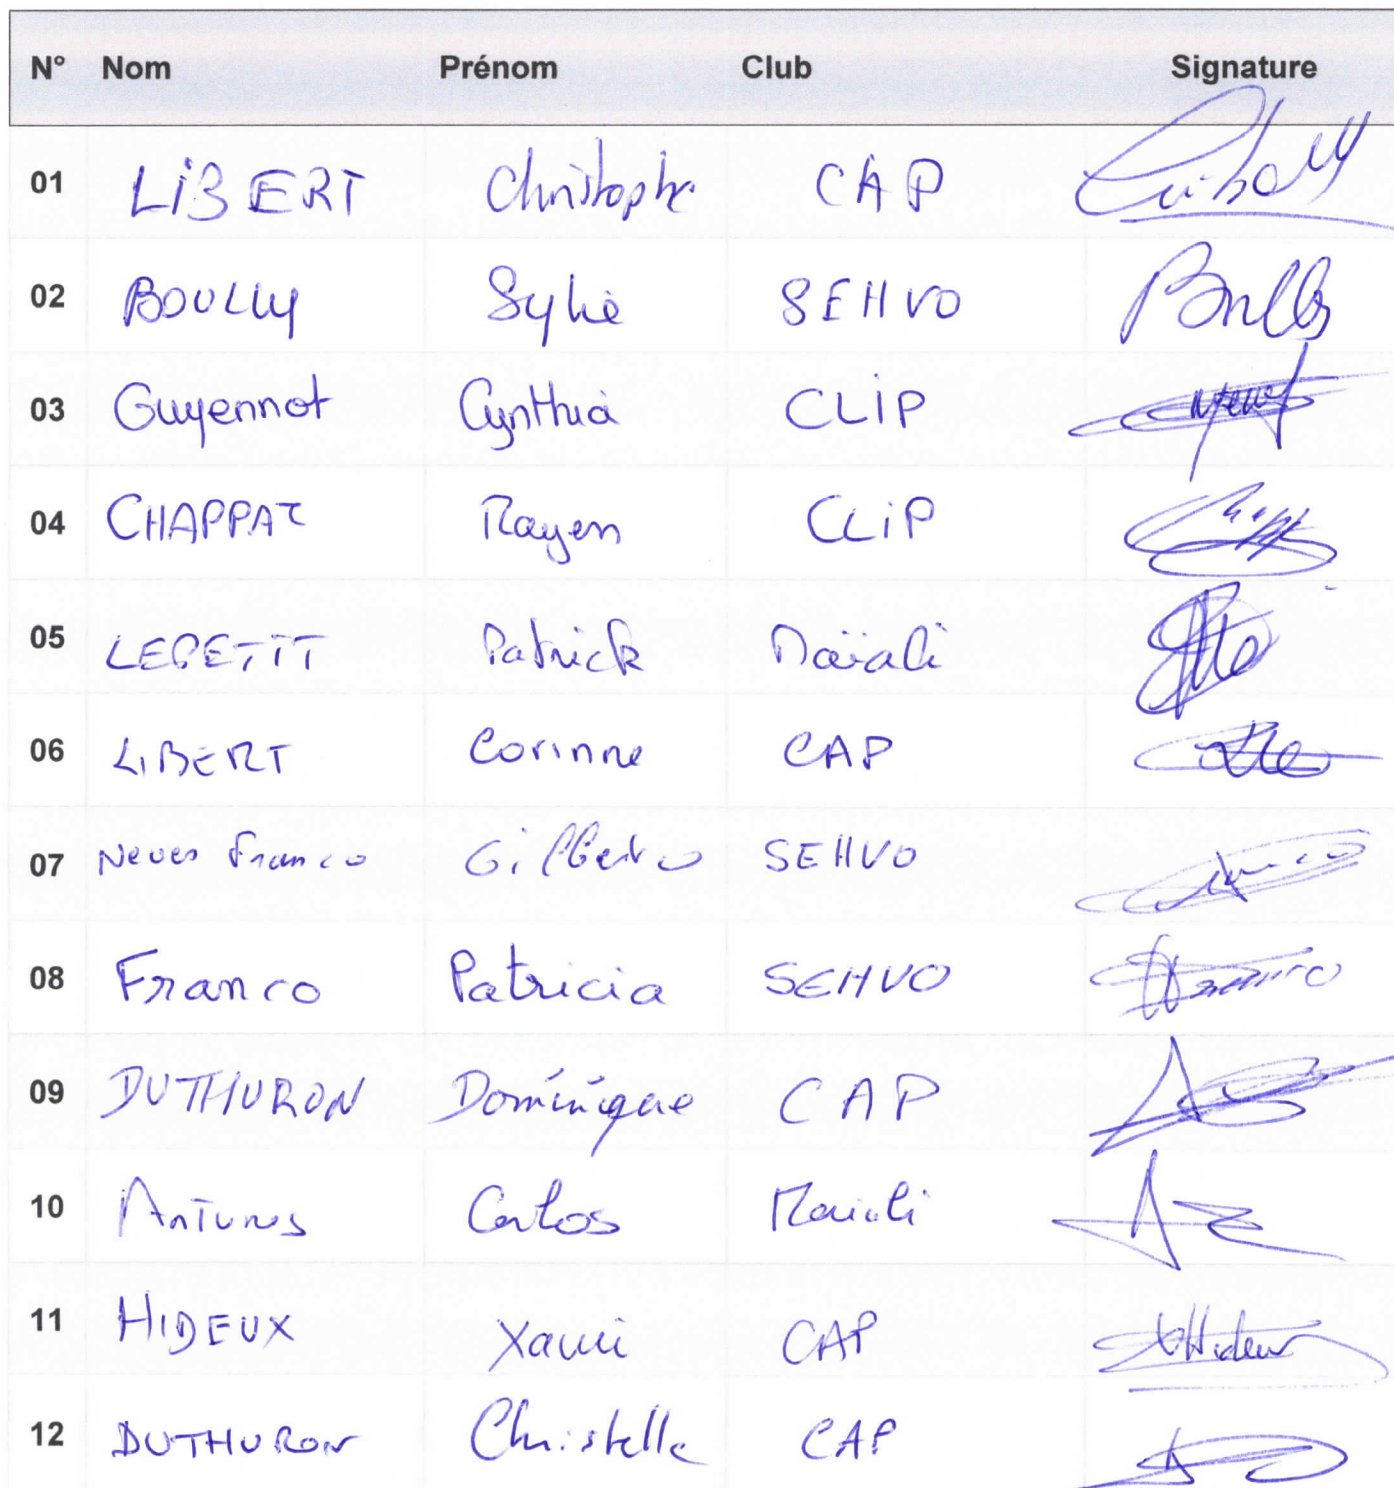 N° Nom Prénom Club Signature
01 LIBERT Christophe CAP
02 BOULLY Sylvie SEHVO
03 Guyennot Cynthia CLIP
04 CHAPPAT Rayen CLIP
05 LEPETIT Patrick Maïali
06 LIBERT Corinne CAP
07 Neves Franco Gilberto SEHVO
08 Franco Patricia SEHVO
09 DUTHURON Dominique CAP
10 Antunes Carlos Maiali
11 HIDEUX Xavier CAP
12 DUTHURON Christelle CAP